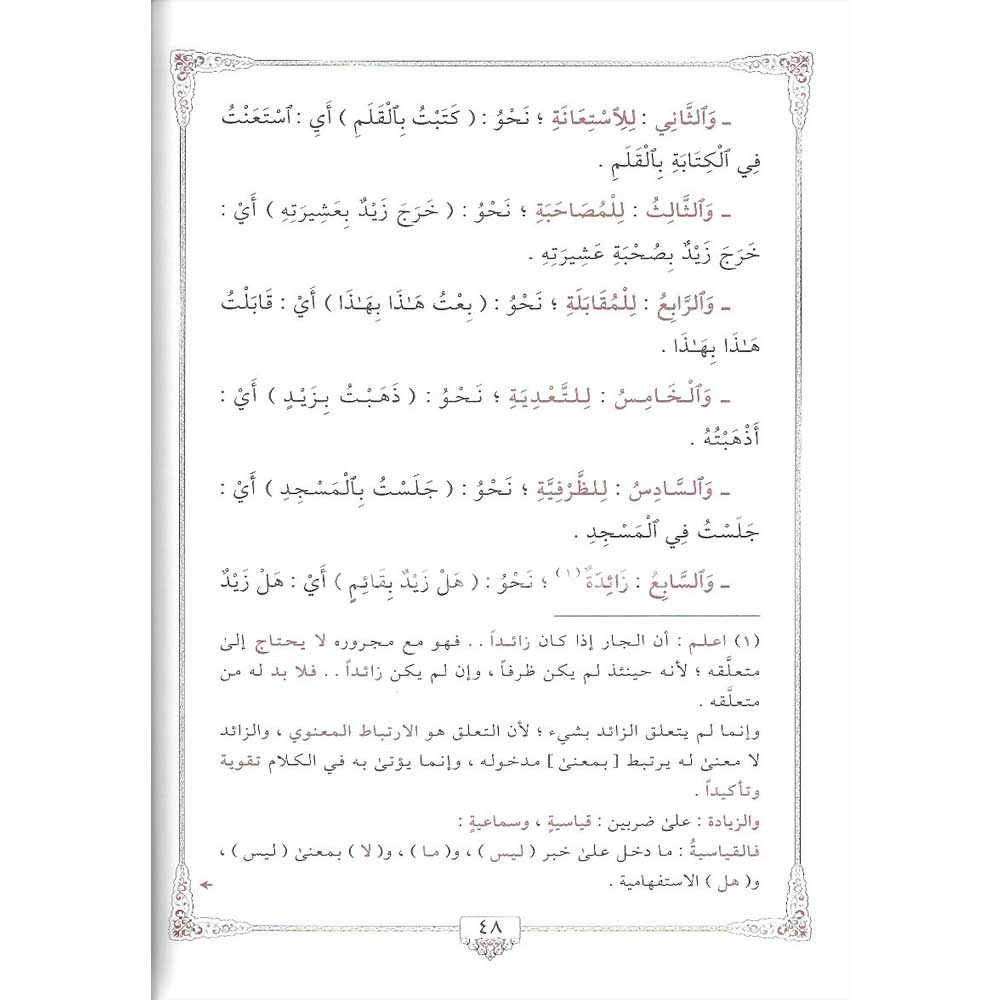 ـ وَٱلثَّانِي : لِلِٱسْتِعَانَةِ ؛ نَحْوُ : ( كَتَبْتُ بِٱلْقَلَمِ ) أَيِ : ٱسْتَعَنْتُ
فِي ٱلْكِتَابَةِ بِٱلْقَلَمِ .
ـ وَٱلثَّالِثُ : لِلْمُصَاحَبَةِ ؛ نَحْوُ : ( خَرَجَ زَيْدٌ بِعَشِيرَتِهِ ) أَيْ :
خَرَجَ زَيْدٌ بِصُحْبَةِ عَشِيرَتِهِ .
ـ وَٱلرَّابِعُ : لِلْمُقَابَلَةِ ؛ نَحْوُ : ( بِعْتُ هَـٰذَا بِهَـٰذَا ) أَيْ : قَابَلْتُ
هَـٰذَا بِهَـٰذَا .
ـ وَٱلْخَامِسُ : لِلتَّعْدِيَةِ ؛ نَحْوُ : ( ذَهَبْتُ بِزَيْدٍ ) أَيْ :
أَذْهَبْتُهُ .
ـ وَٱلسَّادِسُ : لِلظَّرْفِيَّةِ ؛ نَحْوُ : ( جَلَسْتُ بِٱلْمَسْجِدِ ) أَيْ :
جَلَسْتُ فِي ٱلْمَسْجِدِ .
ـ وَٱلسَّابِعُ : زَائِدَةٌ (١) ؛ نَحْوُ : ( هَلْ زَيْدٌ بِقَائِمٍ ) أَيْ : هَلْ زَيْدٌ
(١) اعلم : أن الجار إذا كان زائداً . . فهو مع مجروره لا يحتاج إلىٰ
متعلَّقه ؛ لأنه حينئذ لم يكن ظرفاً ، وإن لم يكن زائداً . . فلا بد له من
متعلَّقه .
وإنما لم يتعلق الزائد بشيء ؛ لأن التعلق هو الارتباط المعنوي ، والزائد
لا معنىٰ له يرتبط [ بمعنىٰ ] مدخوله ، وإنما يؤتىٰ به في الكلام تقوية
وتأكيداً .
والزيادة : علىٰ ضربين : قياسيةٍ ، وسماعيةٍ :
فالقياسيةُ : ما دخل علىٰ خبر ( ليس ) ، و( ما ) ، و( لا ) بمعنىٰ ( ليس ) ،
و( هل ) الاستفهامية .
٤٨